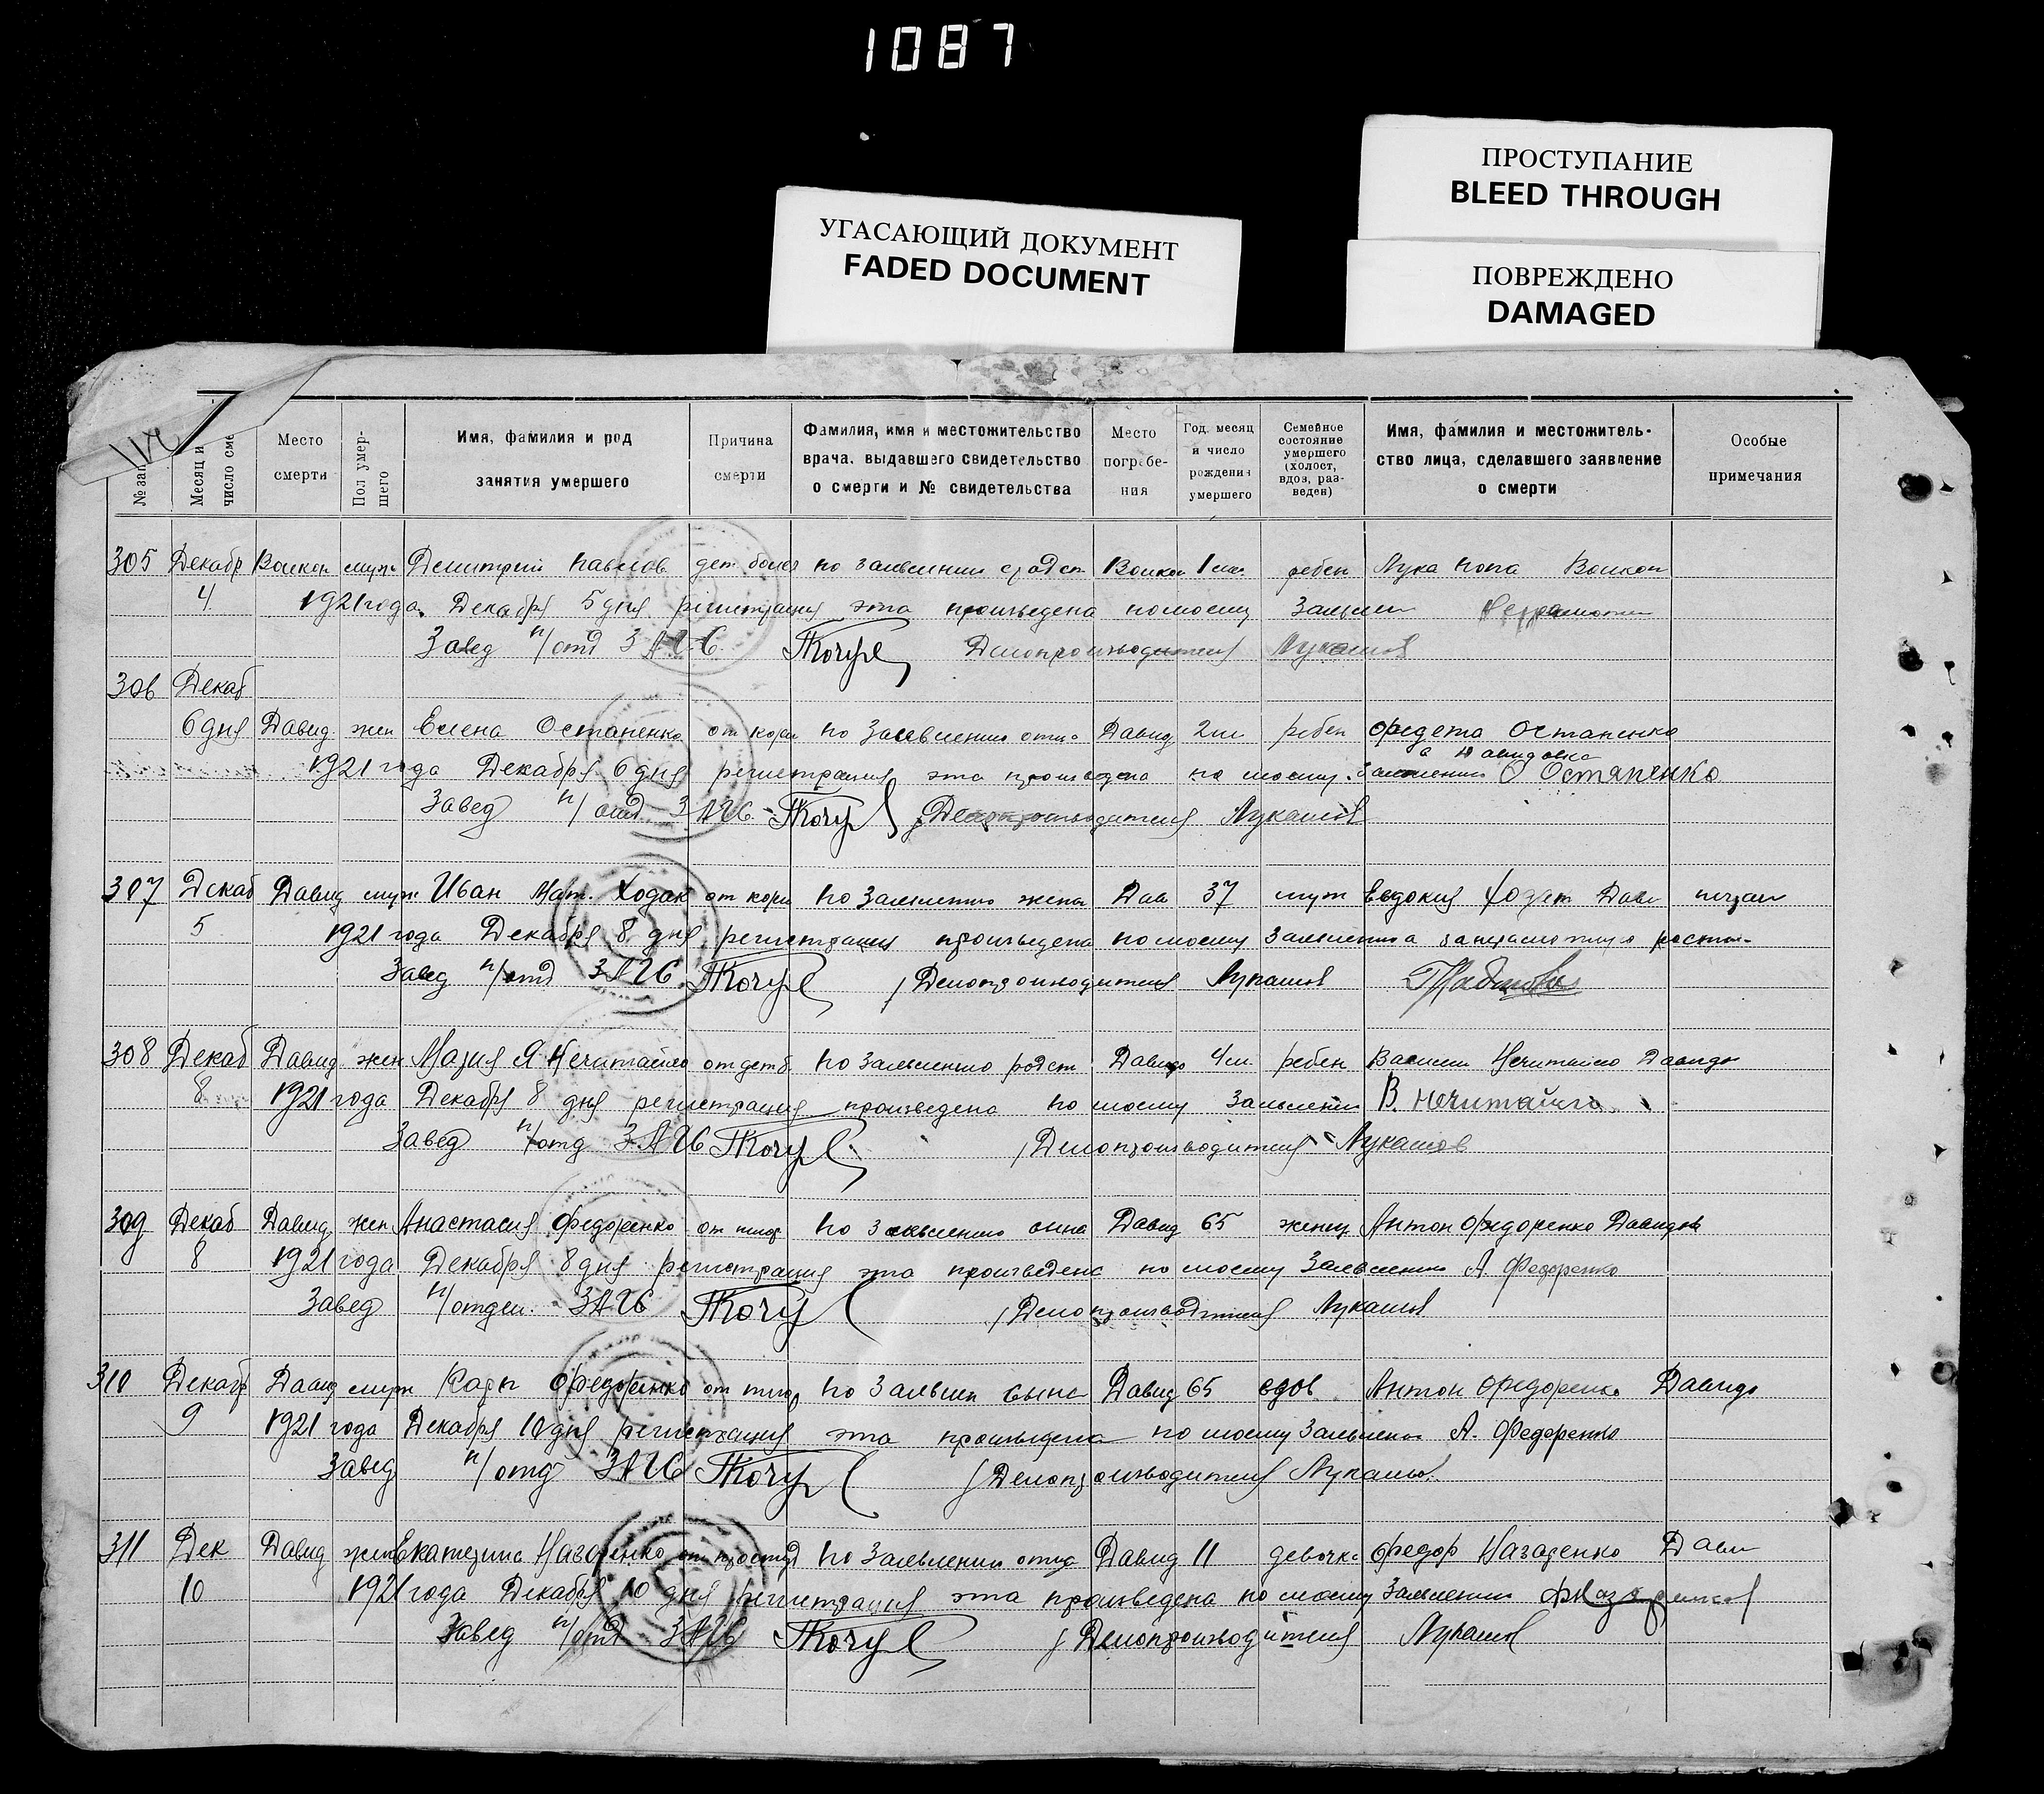 1087
ПРОСТУПАНИЕ
BLEED THROUGH
УГАСАЮЩИЙ ДОКУМЕНТ
FADED DOCUMENT
ПОВРЕЖДЕНО
DAMAGED
№ зап
Месяц и число сме
Место смерти
Пол умер-шего
Имя, фамилия и род занятия умершего
Причина смерти
Фамилия, имя и местожительство врача, выдавшего свидетельство о смерти и № свидетельства
Место погребе-ния
Год, месяц и число рождения умершего
Семейное состояние умершего (холост, вдов, раз-веден)
Имя, фамилия и местожитель-ство лица, сделавшего заявление о смерти
Особые примечания
305 Декабр муж Дмитрий Павлов дет болез по заявлению 1 ребен Лука Попа
4 1921 года Декабря 5 дня регистрация эта произведена по моему
Завед п/отд ЗАГС Делопроизводитель Лукашов
306 Декаб
6 дня Давид жен Елена Остапенко от кори по заявлению отца Давид 2 ребен Федета Остапенко
в Давидовка
1921 года Декабря 6 дня регистрация эта произведена по моему заявлению О Остапенко
Завед п/отд ЗАГС Делопроизводитель Лукашов
307 Декаб Давид муж Иван Ходак от кори по заявлению жены Дав 37 Евдокия Ходак Дави
5 1921 года Декабря 8 дня регистрация произведена по моему заявлению
Завед п/отд ЗАГС Делопроизводитель Лукашов
308 Декаб Давид жен Мария Я Нечитайло от дет б. по заявлению родст Давидо 4 м. ребен Василий Нечитайло Давидо
8 1921 года Декабря 8 дня регистрация произведена по моему заявлению В. Нечитайло
Завед п/отд ЗАГС Делопроизводитель Лукашов
309 Декаб Давид жен Анастасия Федоренко от тиф по заявлению сына Давид 65 Антон Федоренко Давидов
8 1921 года Декабря 8 дня регистрация эта произведена по моему заявлению А. Федоренко
Завед п/отдел. ЗАГС Делопроизводитель Лукашов
310 Декабр Давид муж Карп Федоренко от тиф по заявлен сына Давид 65 вдов Антон Федоренко Давидо
9 1921 года Декабря 10 дня регистрация эта произведена по моему заявлению А. Федоренко
Завед п/отд ЗАГС Делопроизводитель Лукашов
311 Дек Давид жен Екатерина Назаренко от простуд по заявлению отца Давид 11 девочка Федор Назаренко Дави
10 1921 года Декабря 10 дня регистрация эта произведена по моему заявлению Ф Назаренко
Завед п/отд ЗАГС Делопроизводитель Лукашов